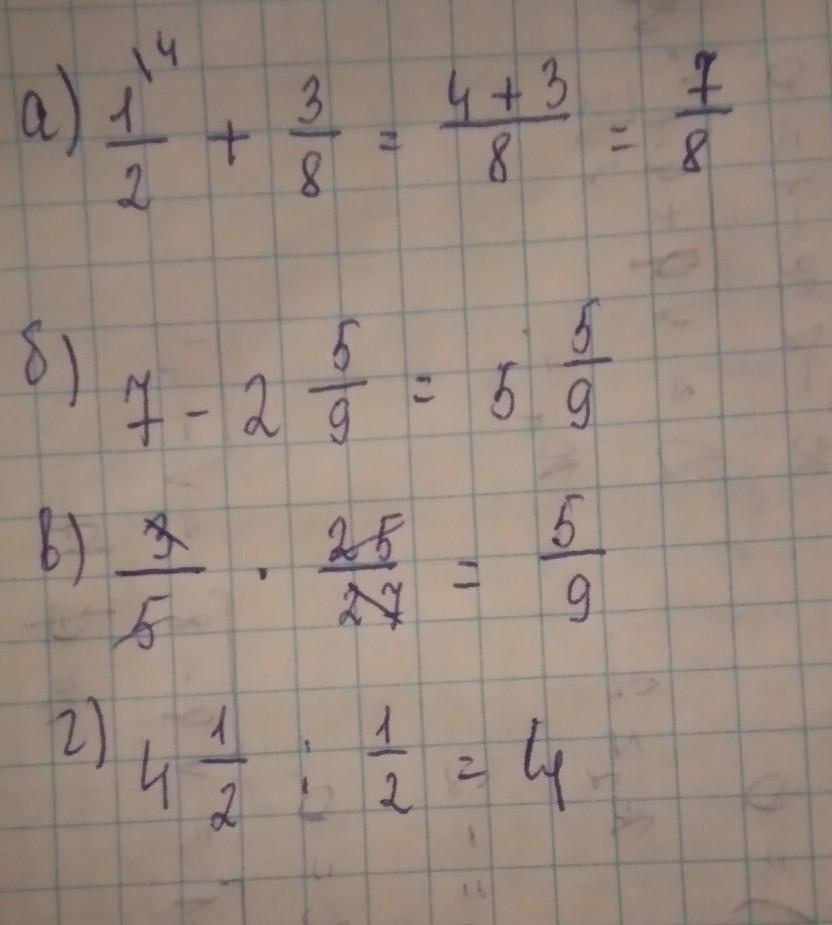 а) 1\4/2 + 3/8 = 4+3/8 = 7/8
б) 7 - 2 5/9 = 5 5/9
в) 3/5 · 25/27 = 5/9
г) 4 1/2 : 1/2 = 4